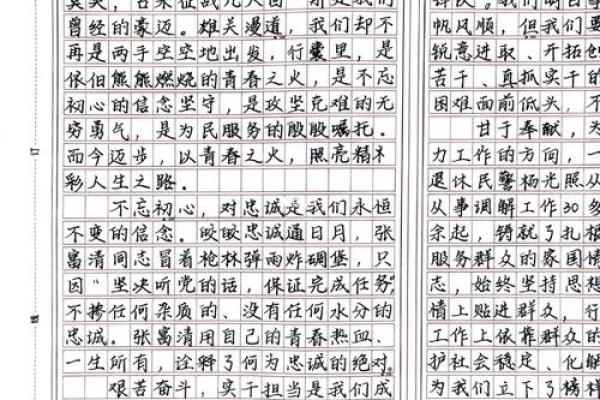 曾经的豪迈。雄关漫道,我们却不
再是两手空空地出发,行囊里,是
依旧熊熊燃烧的青春之火,是不忘
初心的信念坚守,是攻坚克难的无
穷勇气,是为民服务的殷殷嘱托。
而今迈步,以青春之火,照亮精
彩人生之路。
不忘初心,对忠诚是我们永恒
不变的信念。皎皎忠诚通日月,张
富清同志冒着枪林弹雨炸碉堡,只
因“坚决听党的话,保证完成任务”
不掺任何杂质的、没有任何水分的
忠诚。张富清用自己的青春热血、
一生所有,诠释了何为忠诚的绝对。
艰苦奋斗,实干担当是我们成
帆风顺,但我们要
锐意进取、开拓创
苦干、真抓实干的
困难面前低头,不
甘于奉献,为
力工作的方向,一
退休民警杨光照从
从事调解工作30多
余起,铸就了扎根
服务群众的家国情
志,始终坚持思想
情上贴进群众,行
工作上依靠群众的
护社会稳定、化解
为我们立下了榜样
订
线